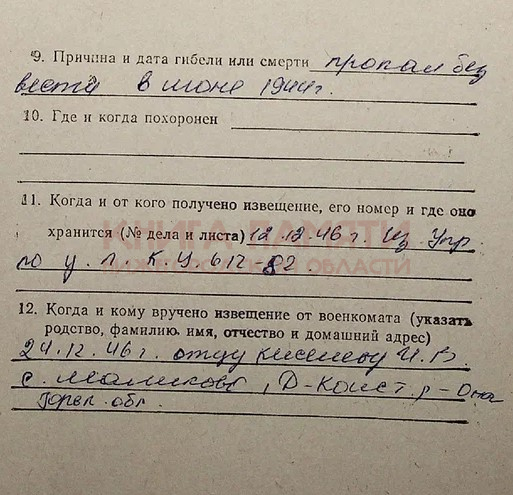 9. Причина и дата гибели или смерти пропал без
вести в июне 1944 г.
10. Где и когда похоронен
11. Когда и от кого получено извещение, его номер и где оно
КНИГА ПАМЯТИ
хранится (№ дела и листа) 12.12.46 г. Из Упр.
НИЖЕГОРОДСКОЙ ОБЛАСТИ
по у. п. к. У. 612-82
12. Когда и кому вручено извещение от военкомата (указать
родство, фамилию, имя, отчество и домашний адрес)
24.12.46 г. отцу Киселеву И. В.
с. Маликово, Д-Конст. р-она
Горьк. обл.